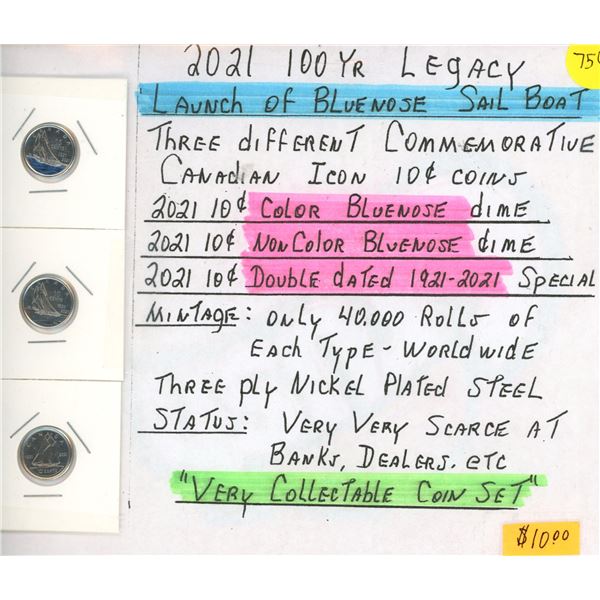 2021 100 YR LEGACY
75¢
LAUNCH OF BLUENOSE SAIL BOAT
THREE different COMMEMORATIVE
CANADIAN ICON 10¢ COINS
2021 10¢ COLOR BLUENOSE dIME
2021 10¢ NONCOLOR BLUENOSE dIME
2021 10¢ DOUBLE dATED 1921-2021 SPECIAL
MINTAGE: ONLY 40.000 ROLLS OF
EACH TYPE - WORLDWIDE
THREE PLY NICKEL PLATED STEEL
STATUS: VERY VERY SCARCE AT
BANKS, DEALERS. ETC
"VERY COLLECTABLE COIN SET"
$10.00